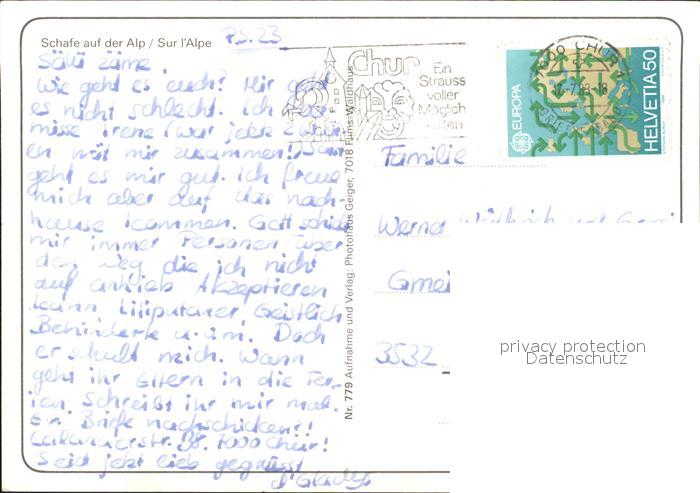 Schafe auf der Alp / Sur l'Alpe
Sälü zäme
wie geht es euch? Mir
es nicht schlecht. Ich
misse Irene (war jetzt 2
en mit mir zusammen!)
geht es mir gut. Ich freue
mich aber auf das nach-
hause kommen. Gott schickt
mir immer Personen über
den weg die ich nicht
auf anhieb Akzeptieren
kann Liliputaner, Geistlich
Behinderte u.s.m. Doch
er schult mich. Wann
geht ihr Eltern in die Fer-
ien. Schreibt ihr mir mal.
Ev. Briefe nachschicken!!
Calandastr. 38. 7000 Chur!
Seid jetzt lieb gegrüsst
Gladys
Nr. 779 Aufnahme und Verlag: Photohaus Geiger, 7018 Flims-Waldhaus
Chur
Ein
Strauss
voller
Möglich-
keiten
EUROPA
HELVETIA 50
Familie
Werner
Gmei
3532
privacy protection
Datenschutz